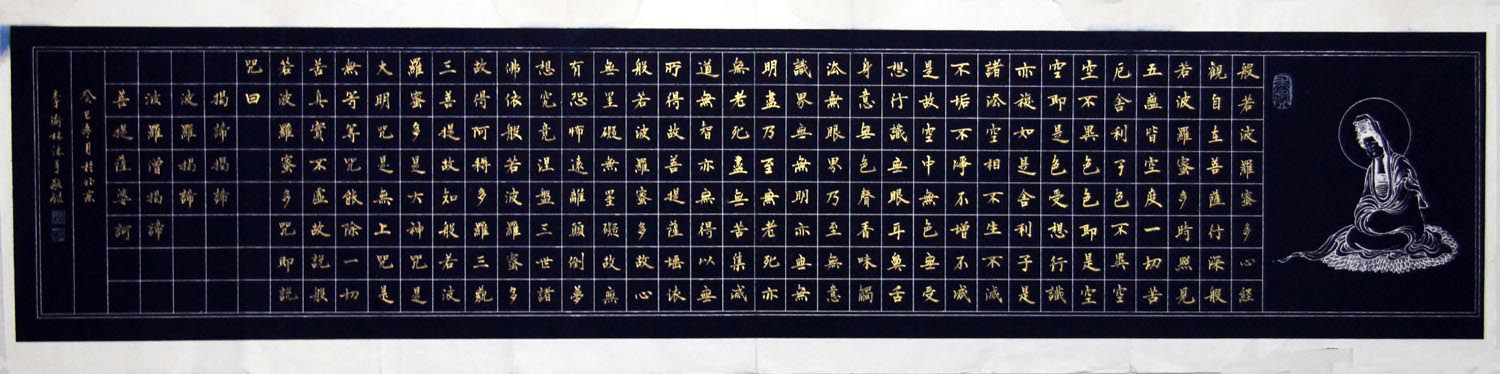 般若波羅蜜多心經
觀自在菩薩行深般
若波羅蜜多時照見
五蘊皆空度一切苦
厄舍利子色不異空
空不異色色即是空
空即是色受想行識
亦復如是舍利子是
諸法空相不生不滅
不垢不淨不增不減
是故空中無色無受
想行識無眼耳鼻舌
身意無色聲香味觸
法無眼界乃至無意
識界無無明亦無無
明盡乃至無老死亦
無老死盡無苦集滅
道無智亦無得以無
所得故菩提薩埵依
般若波羅蜜多故心
無罣礙無罣礙故無
有恐怖遠離顛倒夢
想究竟涅盤三世諸
佛依般若波羅蜜多
故得阿耨多羅三藐
三菩提故知般若波
羅蜜多是大神咒是
大明咒是無上咒是
無等等咒能除一切
苦真實不虛故說般
若波羅蜜多咒即說
咒曰
揭諦揭諦
波羅揭諦
波羅僧揭諦
菩提薩婆訶
癸巳春月於北京
李渝林沐手敬錄